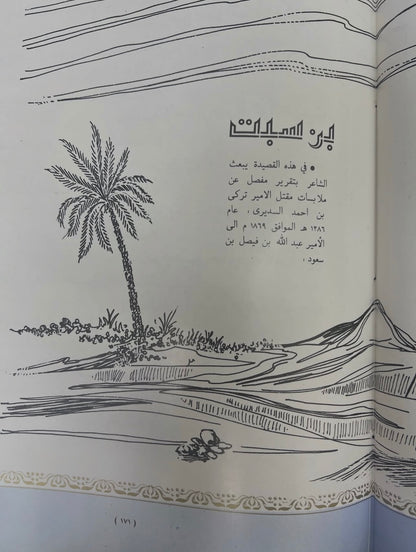 بن السبت
• في هذه القصيدة يبعث
الشاعر بتقرير مفصل عن
ملابسات مقتل الامير تركى
بن احمد السديرى ، عام
١٢٨٦ هـ الموافق ١٨٦٩ م الى
الأمير عبد الله بن فيصل بن
سعود .
( ١٧١ )